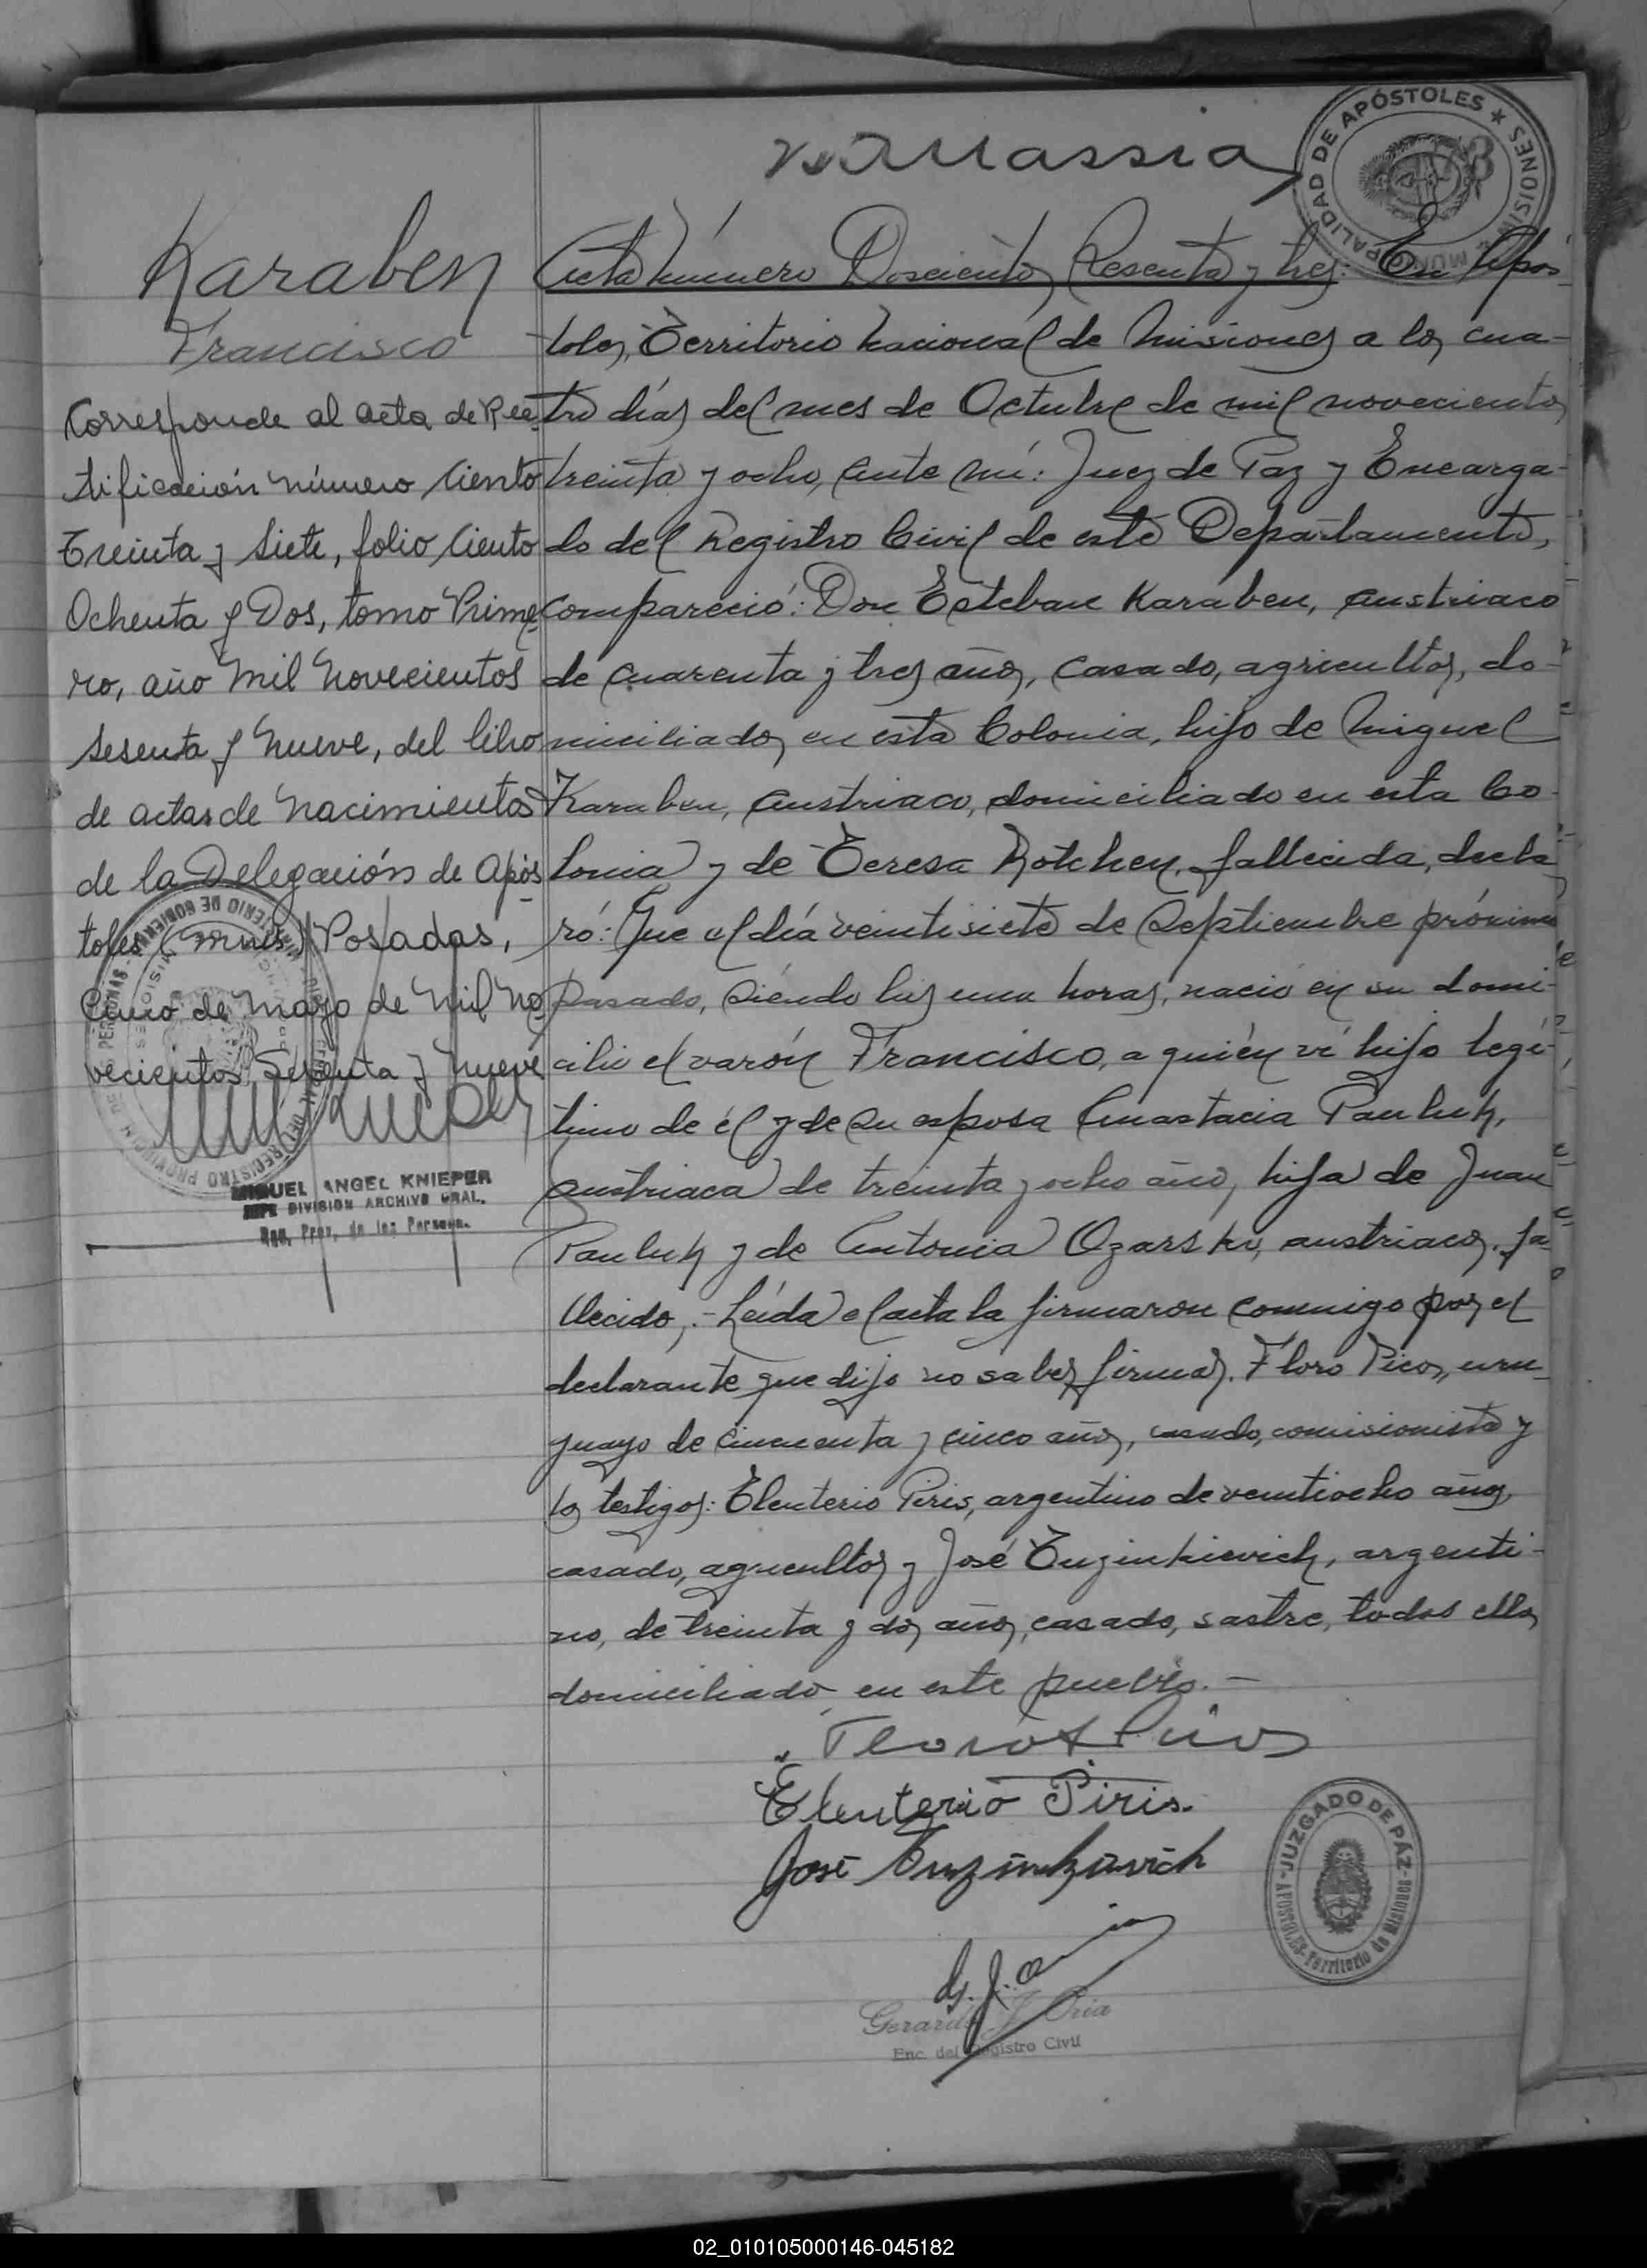 MUNICIPALIDAD DE APÓSTOLES ★ MISIONES
Karaben
Francisco
Corresponde al acta de Rec-
tificación número Ciento
Treinta y Siete, folio Ciento
Ochenta y Dos, tomo Prime-
ro, año Mil Novecientos
Sesenta y Nueve, del libro
de actas de Nacimientos
de la Delegación de Após-
toles (Mnes) Posadas,
Cinco de Mayo de Mil No-
vecientos Sesenta y Nueve
MIGUEL ANGEL KNIEPER
JEFE DIVISION ARCHIVO GRAL.
Reg. Prov. de las Person.
Acta número Doscientos Sesenta y tres: En Após-
toles, Territorio Nacional de Misiones a los cua-
tro días del mes de Octubre de mil novecientos
treinta y ocho, ante mí: Juez de Paz y Encarga-
do del Registro Civil de este Departamento,
compareció: Don Esteban Karaben, austriaco
de cuarenta y tres años, casado, agricultor, do-
miciliado, en esta Colonia, hijo de Miguel
Karaben, austriaco, domiciliado en esta Co-
lonia y de Teresa Kotchen, fallecida, decla-
ró: Que el día veintisiete de Septiembre próximo
pasado, siendo las una horas, nació en su domi-
cilio el varón Francisco, a quién ví hijo legí-
timo de él y de su esposa Anastacia Pauluk,
austriaca de treinta y ocho años, hija de Juan
Pauluk y de Antonia Ozarski, austriacos, fa-
llecidos,.- Leída el acta la firmaron conmigo por el
declarante que dijo no saber firmar, Floro Picos, uru-
guayo de cincuenta y cinco años, casado, comisionista y
los testigos: Eleuterio Piris, argentino de veintiocho años,
casado, agricultor y José Tuzinkievich, argenti-
no, de treinta y dos años, casado, sastre, todos ellos
domiciliado en este pueblo.-
Eleuterio Piris.
José Tuzinkievich
JUZGADO DE PÁZ
APOSTOLES - Territorio de Misiones
G. J. Oria
Gerardo J. Oria
Enc. del Registro Civil
02_010105000146-045182